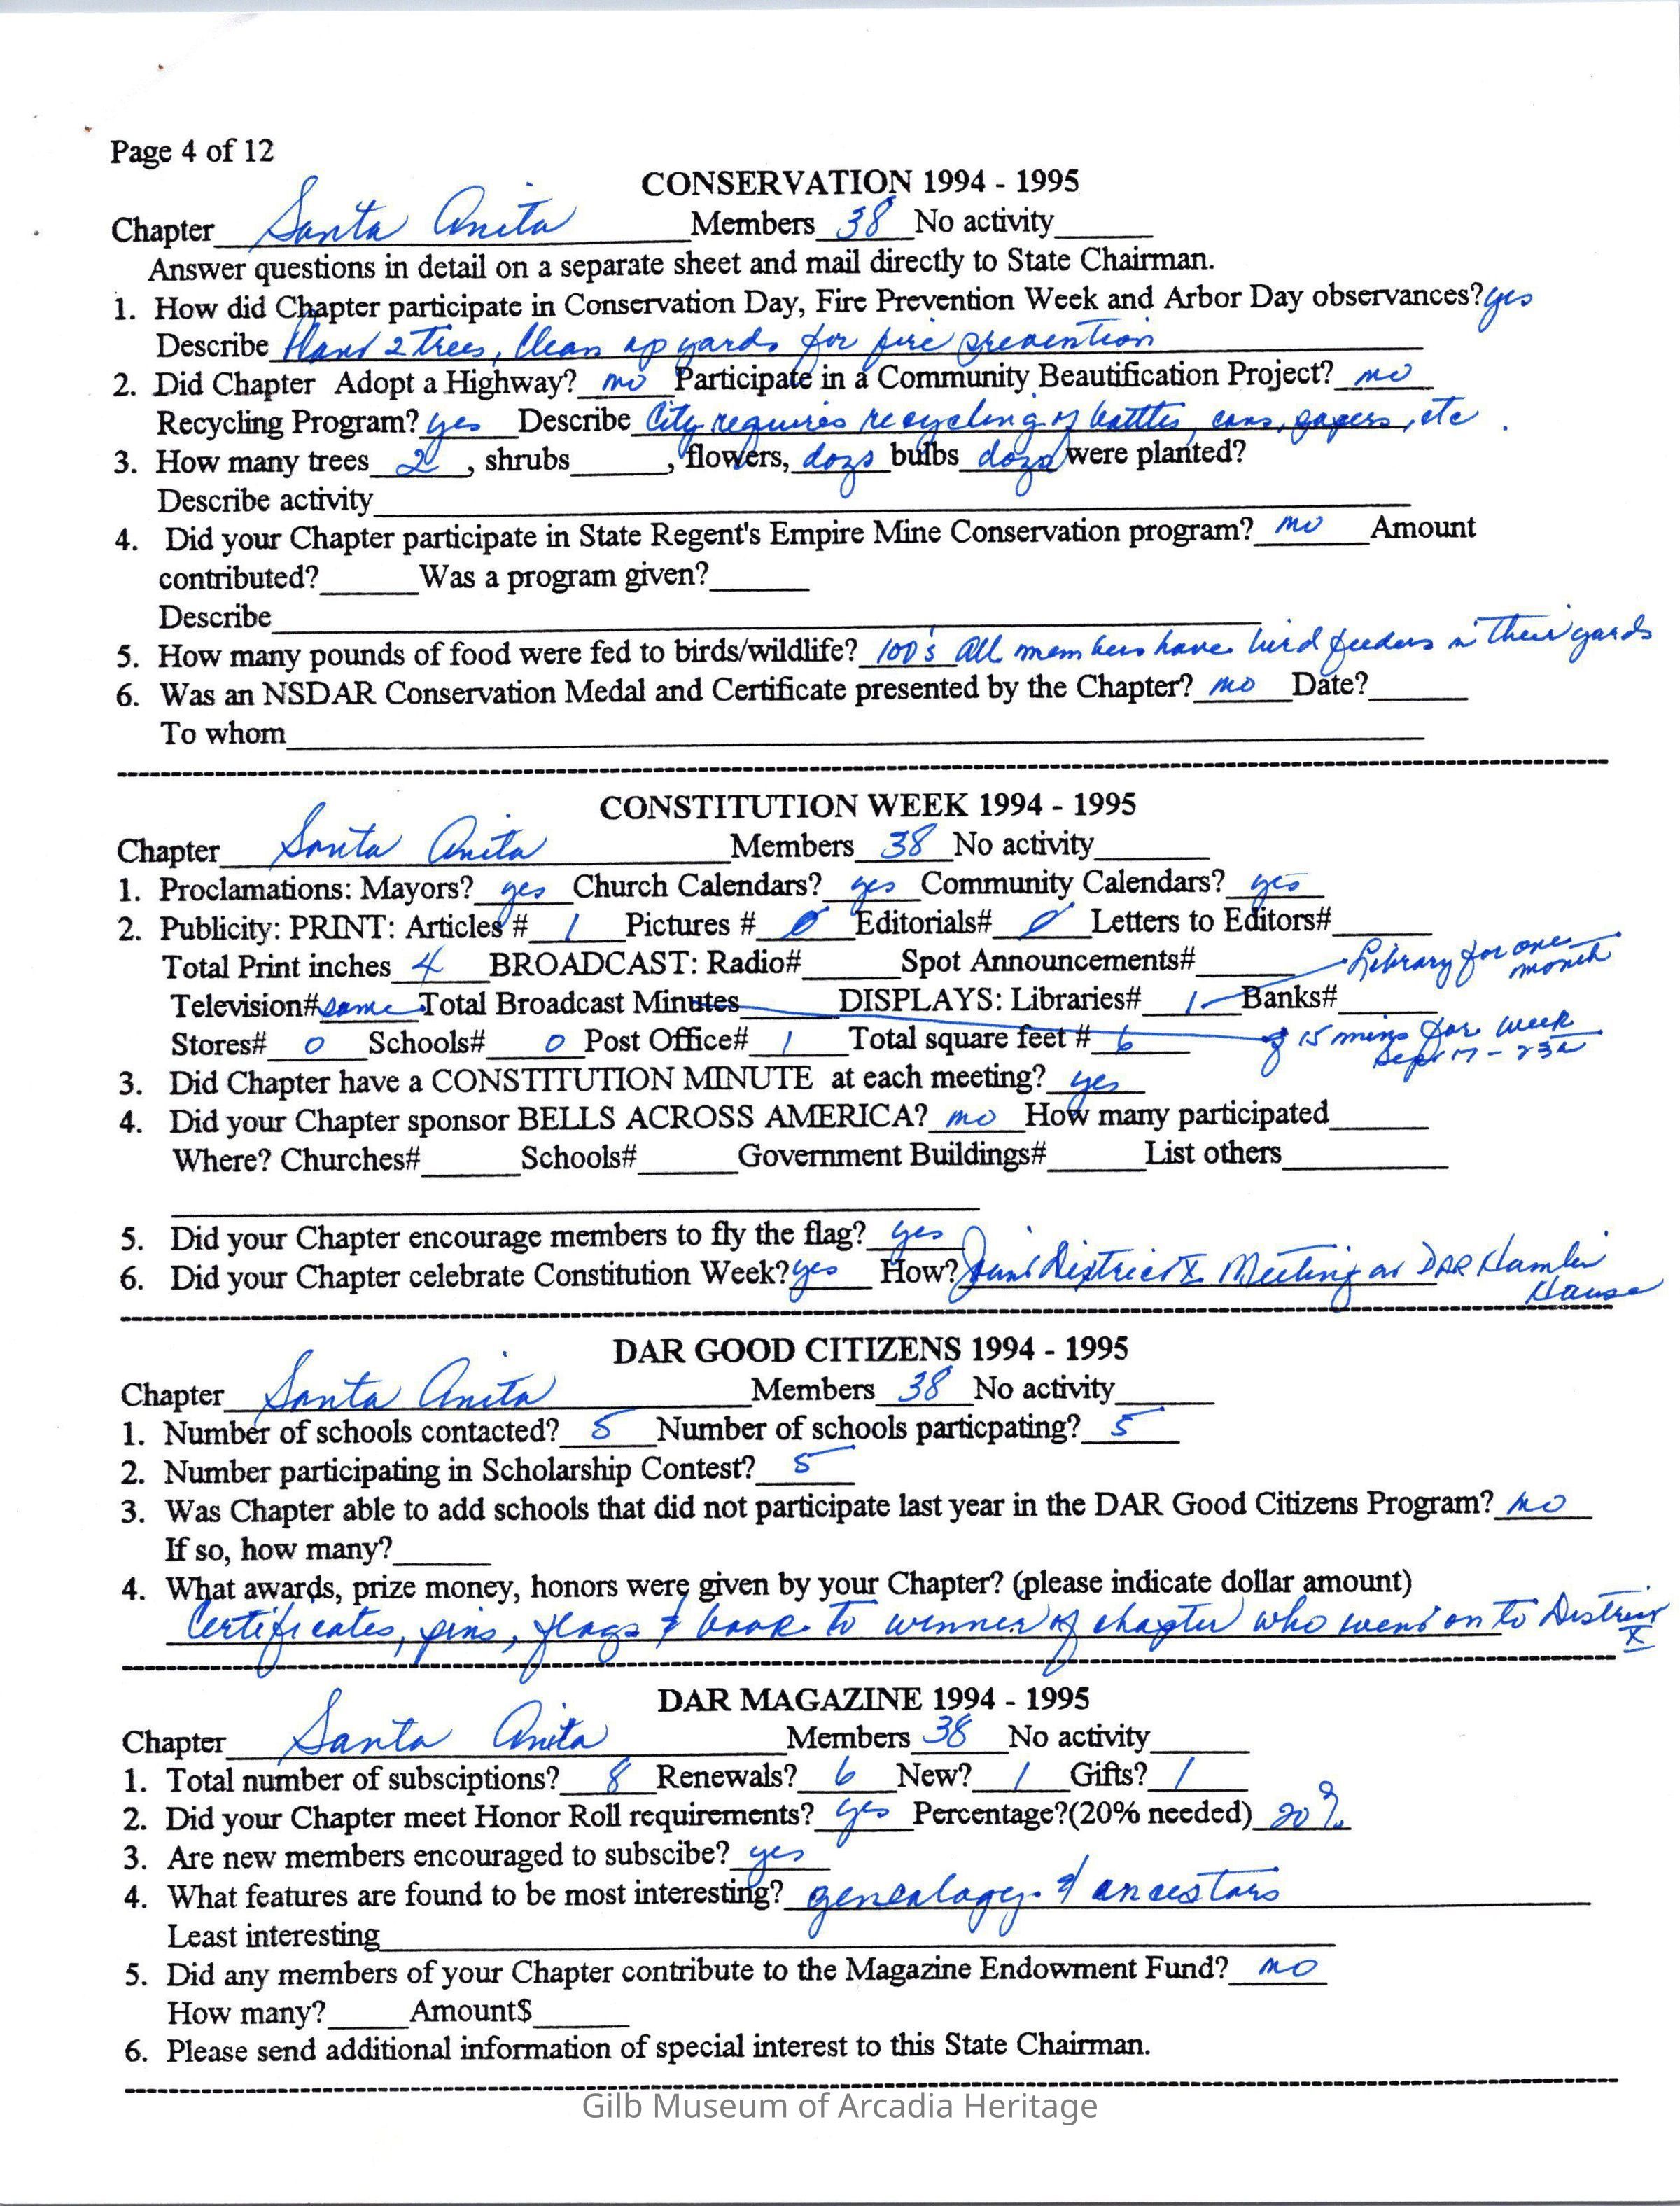 Page 4 of 12
CONSERVATION 1994 - 1995
Chapter Santa Anita Members 38 No activity
Answer questions in detail on a separate sheet and mail directly to State Chairman.
1. How did Chapter participate in Conservation Day, Fire Prevention Week and Arbor Day observances? yes
Describe Plant 2 trees, Clean up yards for fire prevention
2. Did Chapter Adopt a Highway? no Participate in a Community Beautification Project? no
Recycling Program? yes Describe City requires recycling of bottles, cans, papers, etc.
3. How many trees 2, shrubs, flowers, dozs bulbs dozs were planted?
Describe activity
4. Did your Chapter participate in State Regent's Empire Mine Conservation program? no Amount
contributed? Was a program given?
Describe
5. How many pounds of food were fed to birds/wildlife? 100's All members have bird feeders in their yards
6. Was an NSDAR Conservation Medal and Certificate presented by the Chapter? no Date?
To whom
CONSTITUTION WEEK 1994 - 1995
Chapter Santa Anita Members 38 No activity
1. Proclamations: Mayors? yes Church Calendars? yes Community Calendars? yes
2. Publicity: PRINT: Articles # 1 Pictures # 0 Editorials# 0 Letters to Editors#
Total Print inches 4 BROADCAST: Radio# Spot Announcements# Library for one month
Television# same Total Broadcast Minutes DISPLAYS: Libraries# 1 Banks#
Stores# 0 Schools# 0 Post Office# 1 Total square feet # 6 15 mins for week Sept 17 - 23rd
3. Did Chapter have a CONSTITUTION MINUTE at each meeting? yes
4. Did your Chapter sponsor BELLS ACROSS AMERICA? no How many participated
Where? Churches# Schools# Government Buildings# List others
5. Did your Chapter encourage members to fly the flag? yes
6. Did your Chapter celebrate Constitution Week? yes How? District X Meeting at DAR Hamlin House
DAR GOOD CITIZENS 1994 - 1995
Chapter Santa Anita Members 38 No activity
1. Number of schools contacted? 5 Number of schools particpating? 5
2. Number participating in Scholarship Contest? 5
3. Was Chapter able to add schools that did not participate last year in the DAR Good Citizens Program? no
If so, how many?
4. What awards, prize money, honors were given by your Chapter? (please indicate dollar amount)
Certificates, pins, flags & book to winner of chapter who went on to District X
DAR MAGAZINE 1994 - 1995
Chapter Santa Anita Members 38 No activity
1. Total number of subsciptions? 8 Renewals? 6 New? 1 Gifts? 1
2. Did your Chapter meet Honor Roll requirements? yes Percentage?(20% needed) 20%
3. Are new members encouraged to subscibe? yes
4. What features are found to be most interesting? genealogy & ancestors
Least interesting
5. Did any members of your Chapter contribute to the Magazine Endowment Fund? no
How many? Amount$
6. Please send additional information of special interest to this State Chairman.
Gilb Museum of Arcadia Heritage